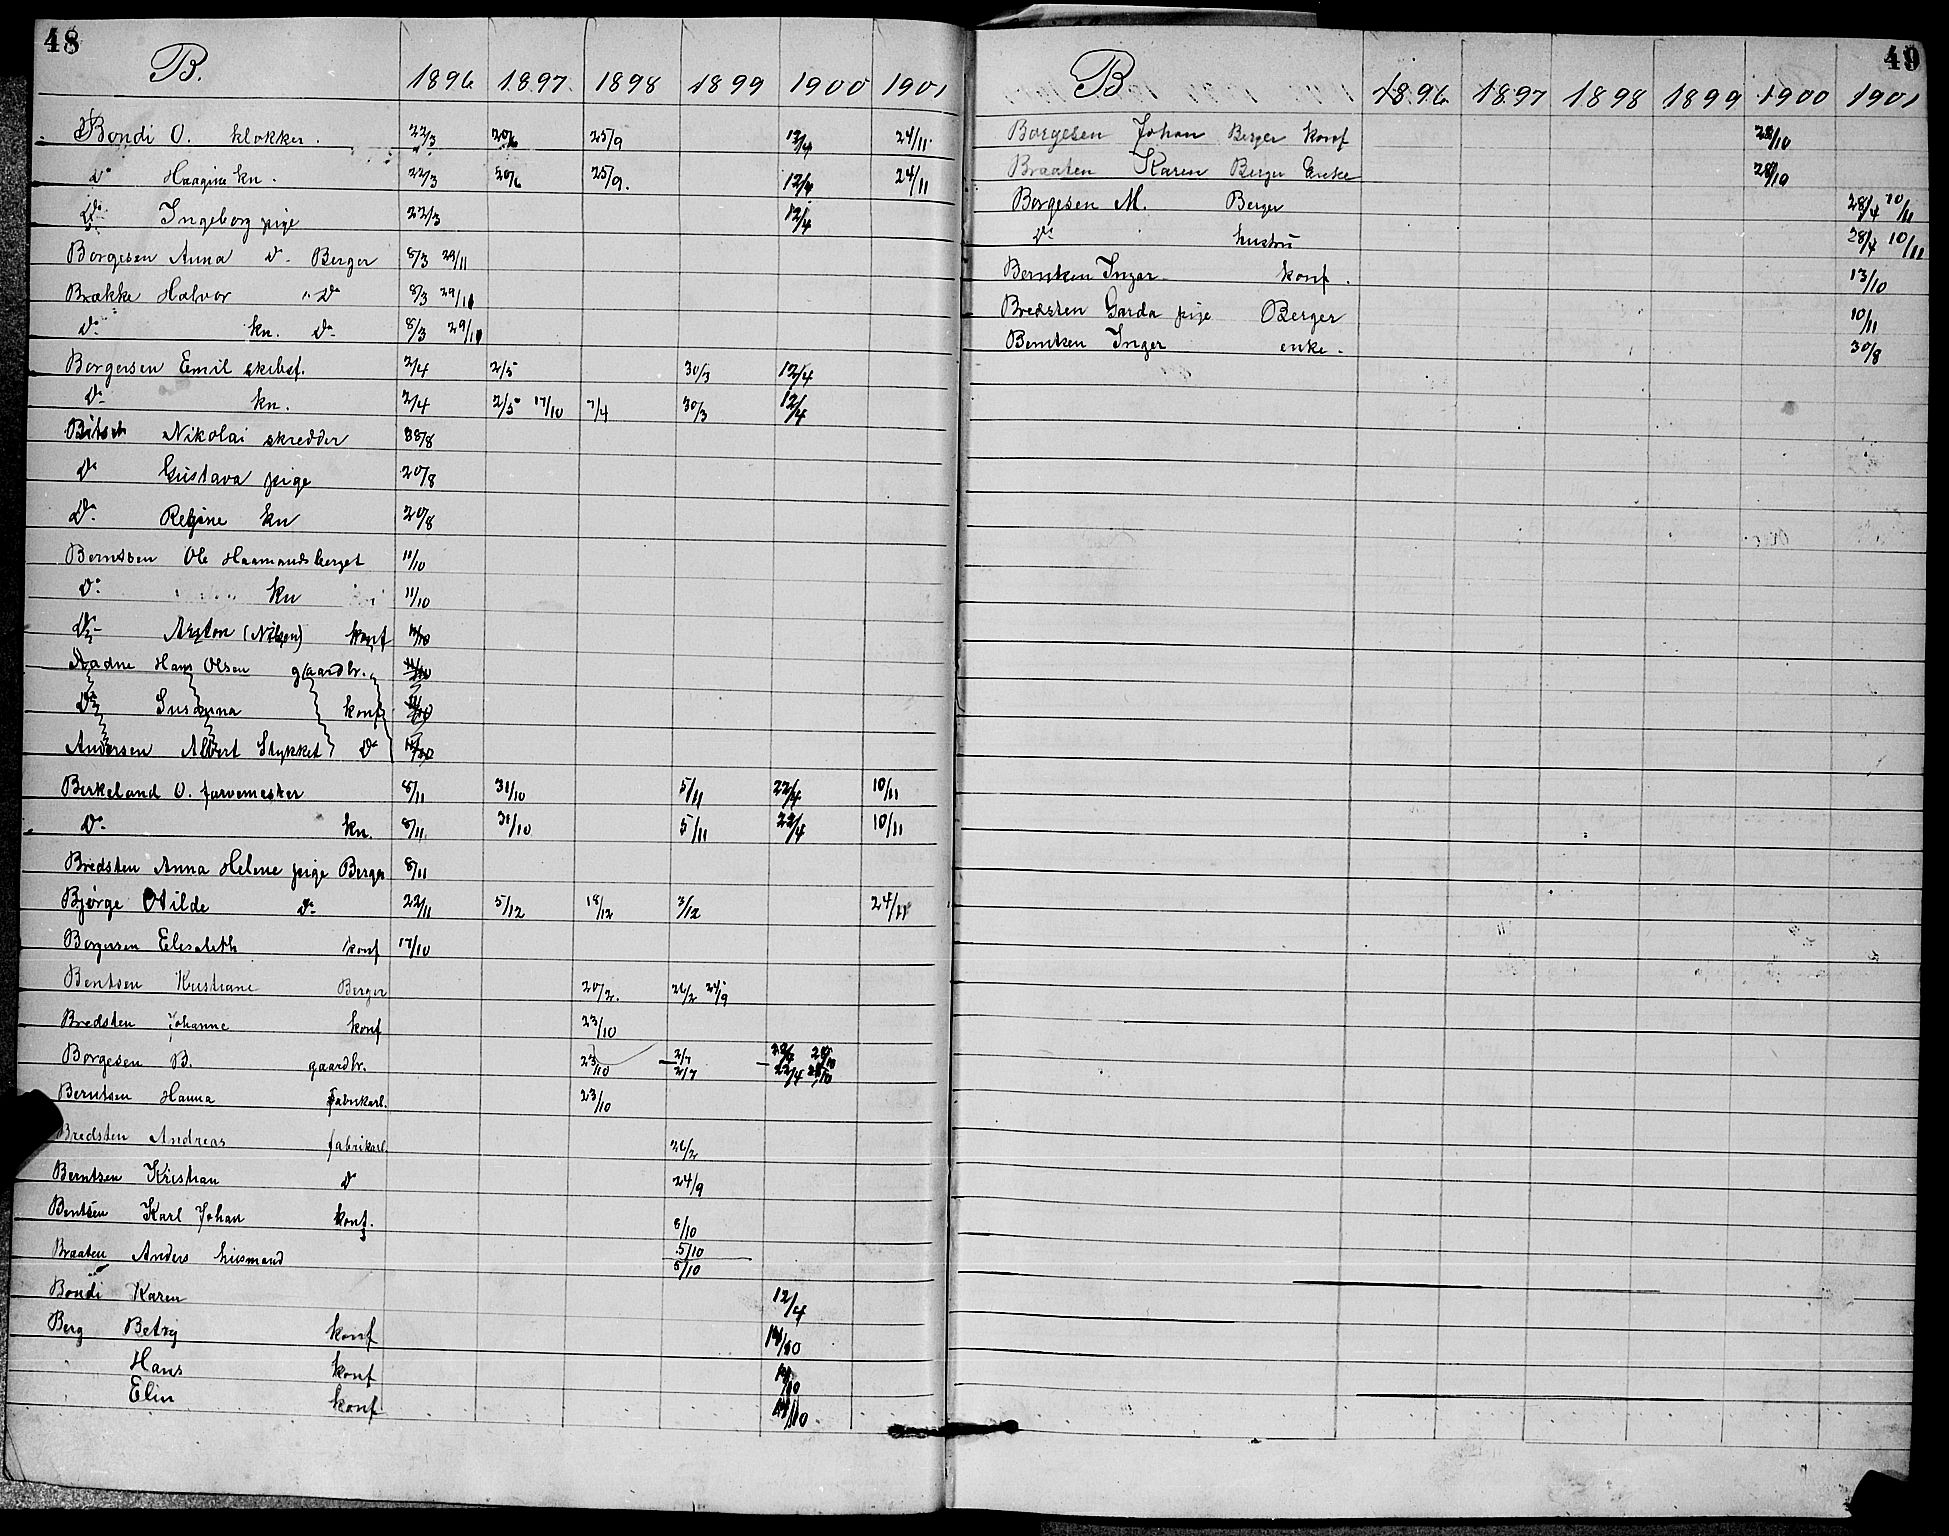 48
B. 1896 1897 1898 1899 1900 1901
Bondi O. klokker. 22/3 20/6 25/9 12/4 24/11
Do Haagine kn. 22/3 20/6 25/9. 12/4 24/11
Do Ingeborg pige 22/3 12/4
Borgesen Anna d. Berger 8/3 29/11
Brække Halvor " Do 8/3 29/11
Do kn. Do 8/3 29/11
Borgersen Emil skibsf. 2/4 2/5 30/3 12/4
Do kn. 2/4 2/5 17/10 7/4 30/3 12/4
Nikolai skredder
Do Gustava pige 20/8
Do Regine kn 20/8
Berntsen Ole Haamandsberget 11/10
Do kn 11/10
Do Anton (Nilsen) konf 11/10
Aadne Hans Olsen gaardbr. 11/10
Do Susanna konf 11/10
Andersen Albert Stykket Do 11/10
Birkeland O. farvemester 8/11 31/10 5/11 22/4 10/11
Do kn. 8/11 31/10 5/11 22/4 10/11
Bredsten Anna Helene pige Berger 8/11
Bjørge Otilde Do 22/11 5/12 18/12 3/12 24/11
Borgersen Elisabeth konf 17/10
Bentsen Kristiane Berger 20/2. 26/2 24/9
Bredsten Johanne konf 23/10
Borgesen B. gaardbr. 23/10 2/7 2/7 22/4 28/10 22/4 28/10
Berntsen Hanna Fabrikarb. 23/10
Bredsten Andreas fabrikarb. 26/2
Berntsen Kristian Do 24/9
Bentsen Karl Johan konf. 8/10
Braaten Anders husmand 5/10 5/10
Bondi Karen 12/4
Berg Betzy konf 14/10
Hans konf 14/10
Elin konf 14/10
49
B 1896 1897 1898 1899 1900 1901
Borgesen Johan Berger konf 28/10
Braaten Karen Berger Enke 28/10
Borgesen M. Berger 28/4 10/11
Do hustru 28/4 10/11
Berntsen Inger konf. 13/10
Bredsten Garda pige Berger 10/11
Berntsen Inger enke. 30/8